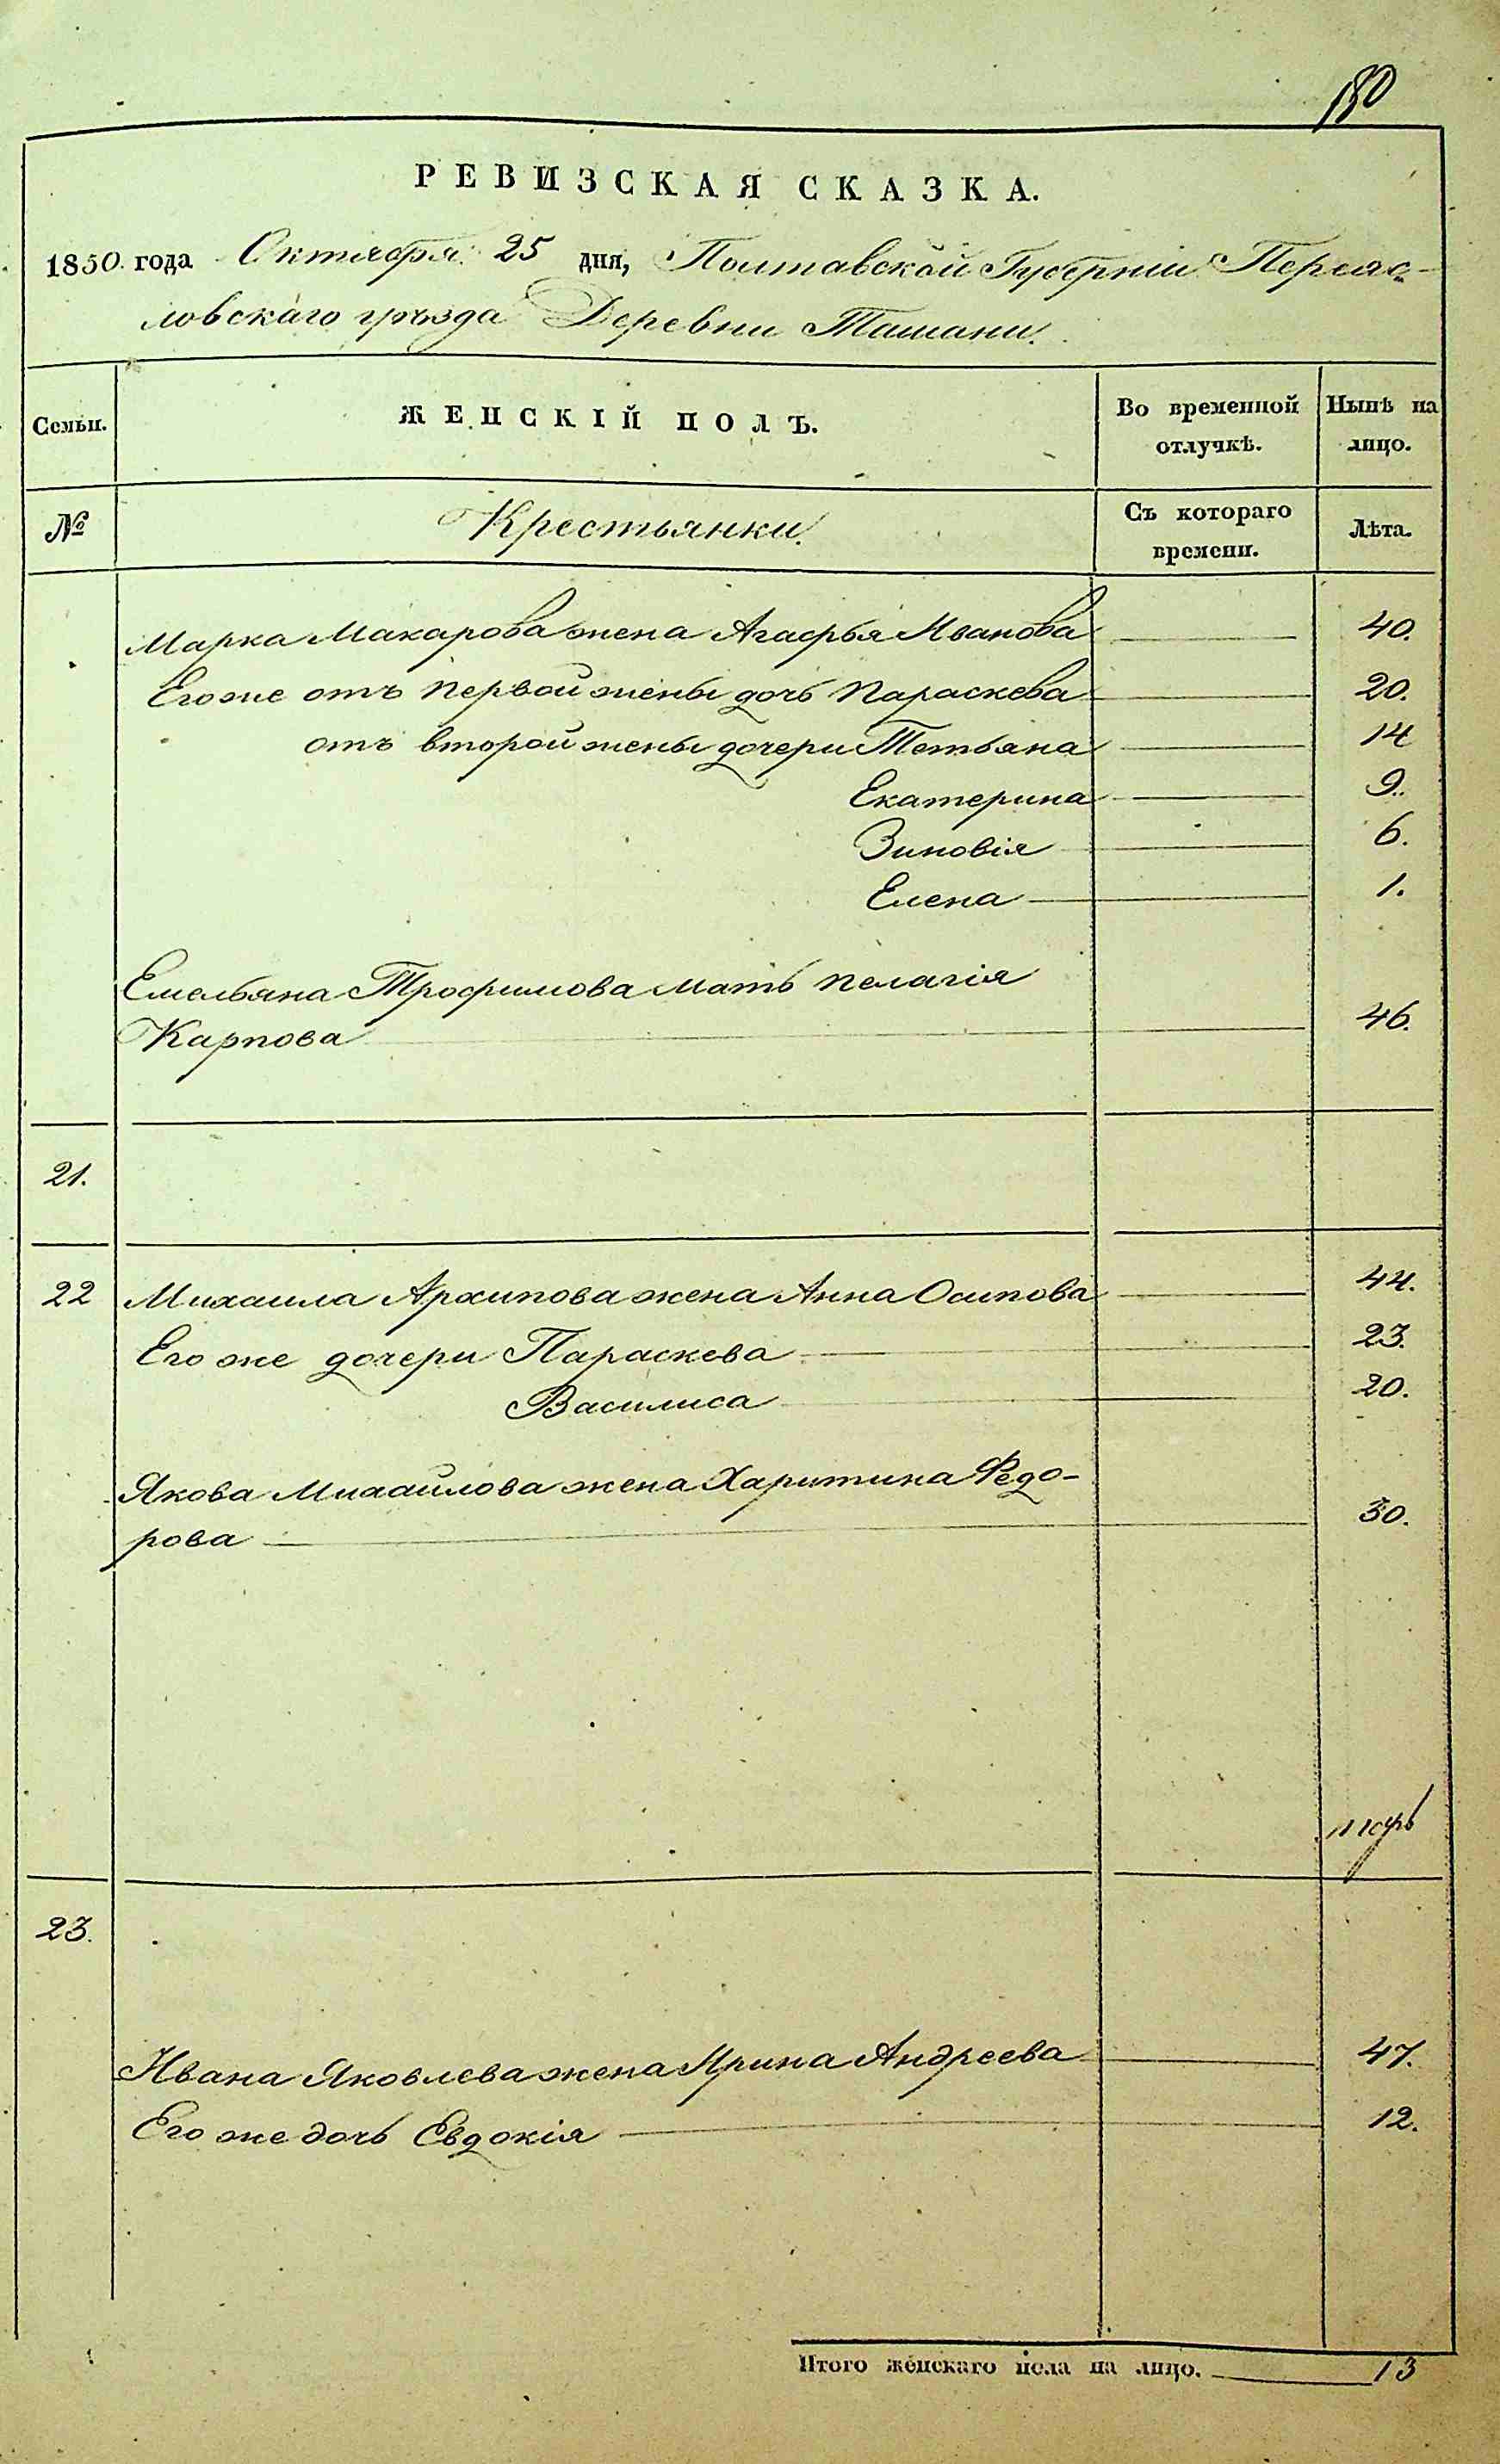 180
РЕВИЗСКАЯ СКАЗКА.
1850 года Октября 25 дня, Полтавской Губерніи Переяс-
ловскаго уѣзда Деревни Ташани.
Семьи. ЖЕНСКІЙ ПОЛЪ. Во временной отлучкѣ. Нынѣ на лицо.
№ Крестьянки. Съ котораго времени. Лѣта.
Марка Макарова жена Агафья Иванова 40.
Его же отъ первой жены дочь Параскева 20.
отъ второй жены дочери Тетьяна 14
Екатерина 9.
Зиновія 6.
Елена 1.
Емельяна Трофимова мать Пелагія
Карпова 46.
21.
22 Михаила Архипова жена Анна Осипова 44.
Его же дочери Параскева 23.
Василиса 20.
Якова Михайлова жена Харитина Федо-
рова 30.
23.
Ивана Яковлева жена Ирина Андреева 47.
Его же дочь Евдокія 12.
Итого женскаго пола на лицо. 13